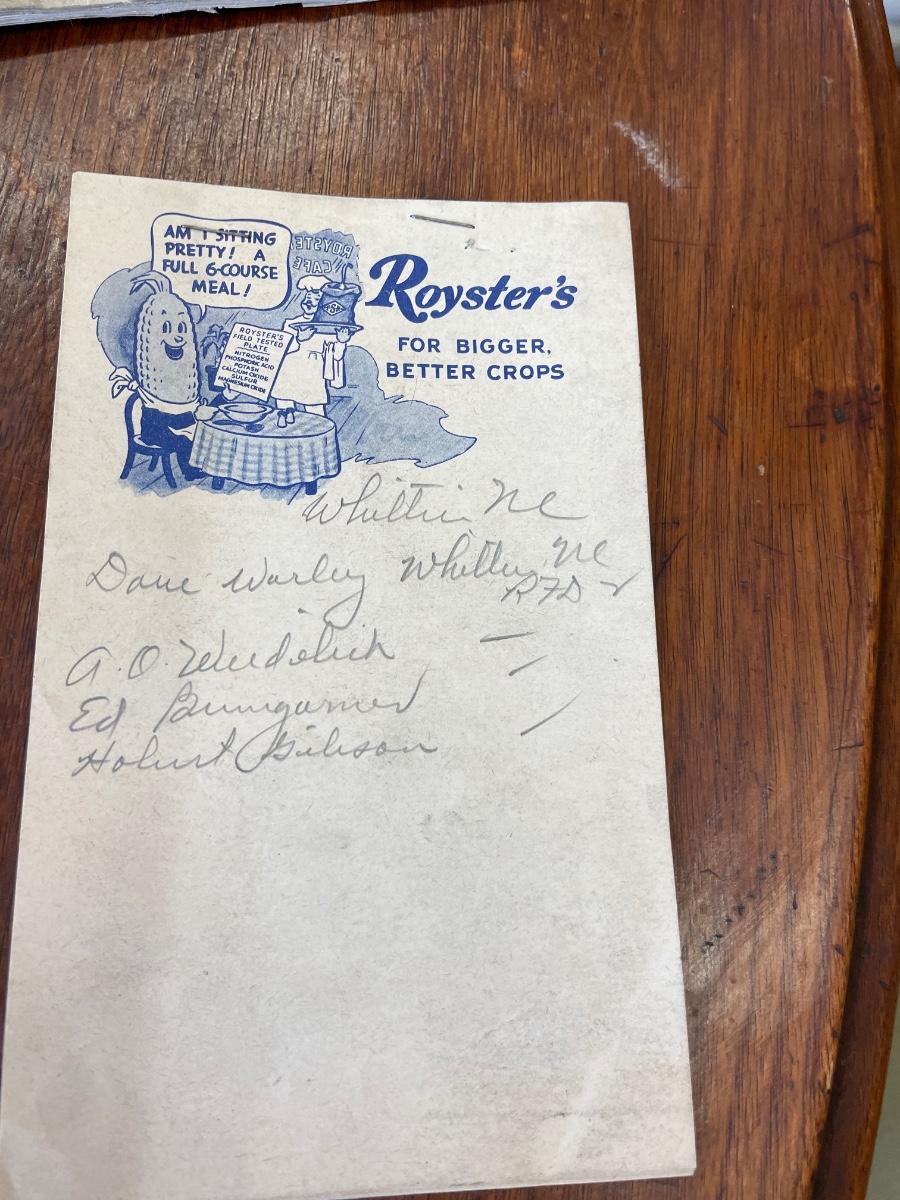 AM I SITTING
PRETTY! A
FULL 6-COURSE
MEAL!
ROYSTER'S
CAFE
ROYSTER'S
FIELD TESTED
PLATE
NITROGEN
PHOSPHORIC ACID
POTASH
CALCIUM OXIDE
SULFUR
MAGNESIUM OXIDE
Royster's
FOR BIGGER,
BETTER CROPS
Whittier NC
Dave Warley Whittier, NC
RFD
A. O.
Ed Bumgarner
Hobert Gibson